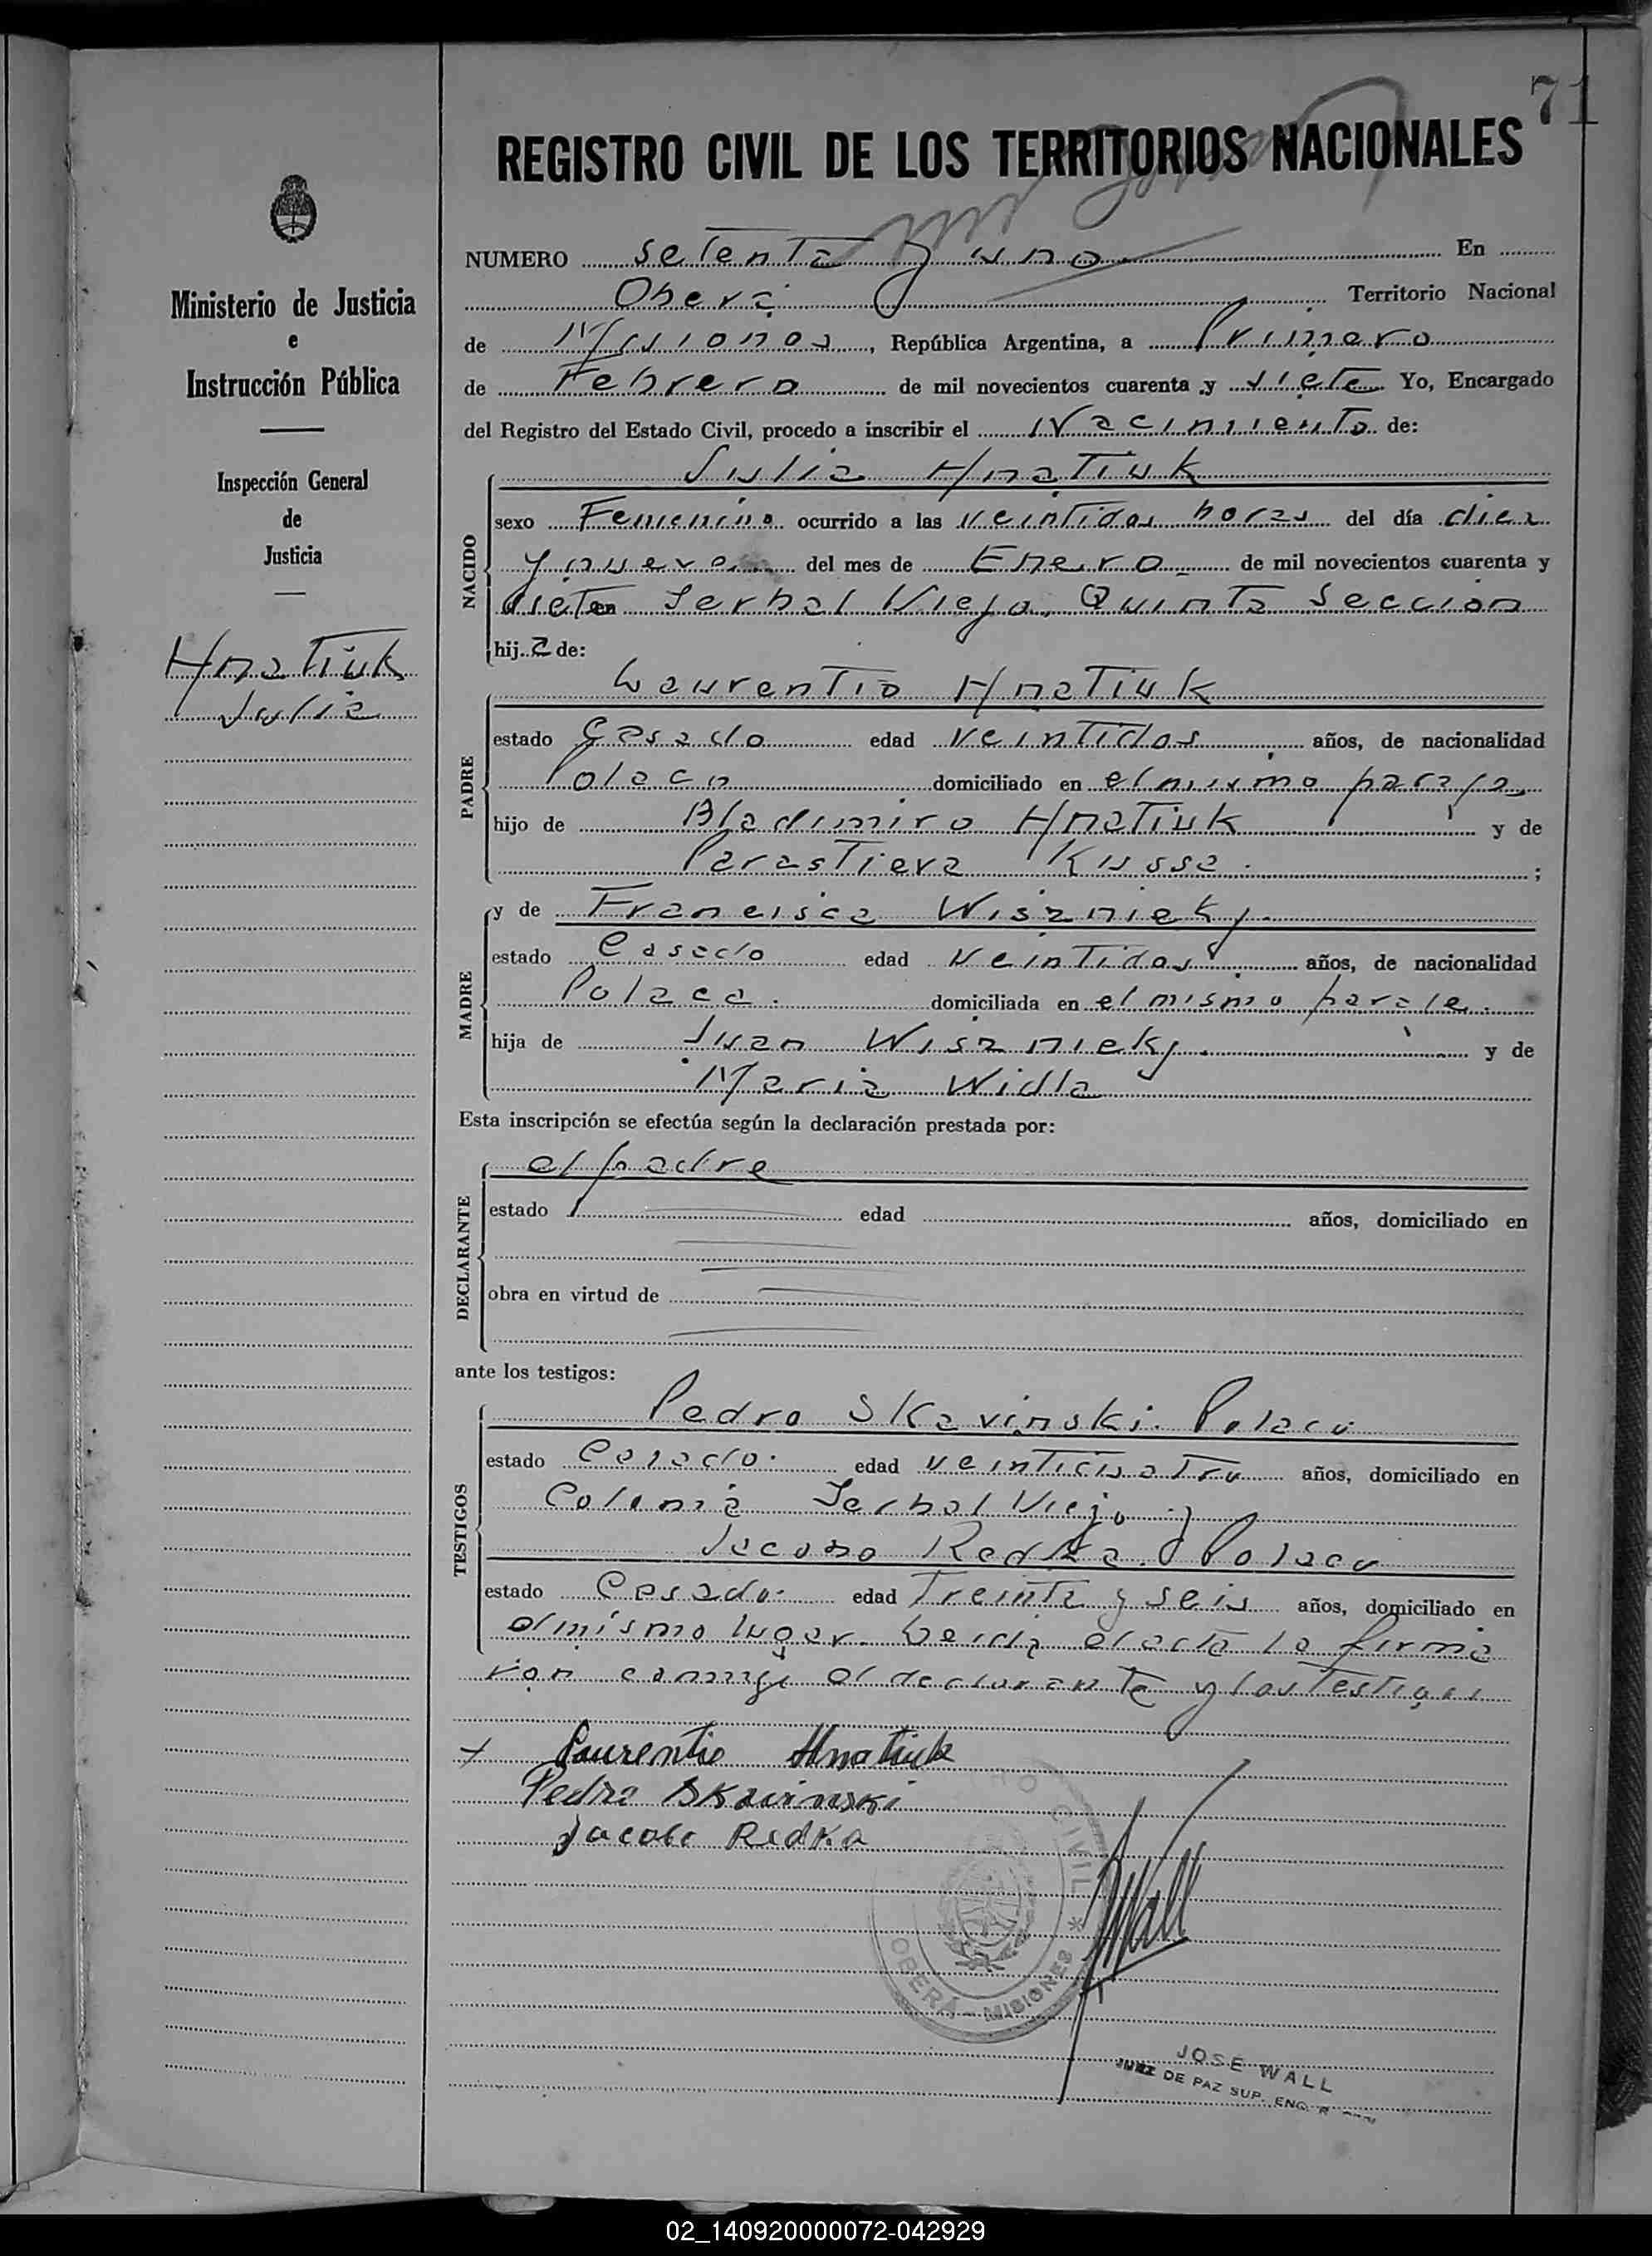 71
REGISTRO CIVIL DE LOS TERRITORIOS NACIONALES
Ministerio de Justicia
e
Instrucción Pública
Inspección General
de
Justicia
Hnatiuk
Julia
NUMERO setenta y uno En
Oberá Territorio Nacional
de Misiones, República Argentina, a Primero
de Febrero de mil novecientos cuarenta y siete Yo, Encargado
del Registro del Estado Civil, procedo a inscribir el Nacimiento de:
Julia Hnatiuk
NACIDO
sexo Femenino ocurrido a las veintidos horas del día diez
y nueve del mes de Enero de mil novecientos cuarenta y
siete en Yerbal Viejo, Quinta Seccion
hija de:
Laurentio Hnatiuk
PADRE
estado Casado edad veintidos años, de nacionalidad
Polaco domiciliado en el mismo paraje
hijo de Bladimiro Hnatiuk y de
Parastieva Kussa ;
y de Francisca Wisznieky
MADRE
estado Casada edad veintidos años, de nacionalidad
Polaca domiciliada en el mismo paraje
hija de Juan Wisznieky y de
Maria Widla
Esta inscripción se efectúa según la declaración prestada por:
el padre
DECLARANTE
estado edad años, domiciliado en
obra en virtud de
ante los testigos:
Pedro Skavinski. Polaco
TESTIGOS
estado Casado. edad veinticuatro años, domiciliado en
Colonia Yerbal Viejo y
Jacobo Redka. Polaco
estado Casado. edad Treinta y seis años, domiciliado en
el mismo lugar. Leida el acta la firma
ron conmigo el declarante y los testigos
x Laurentio Hnatiuk
Pedro Skavinski
Jacobo Redka
CIVIL * OBERÁ - MISIONES
JWall
JOSE WALL
JUEZ DE PAZ SUP. ENC.
02_140920000072-042929